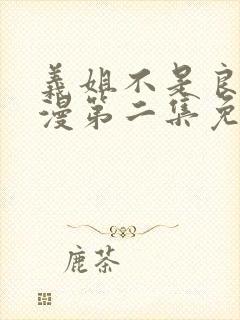 義姐不是良
漫第二集免
鹿茶